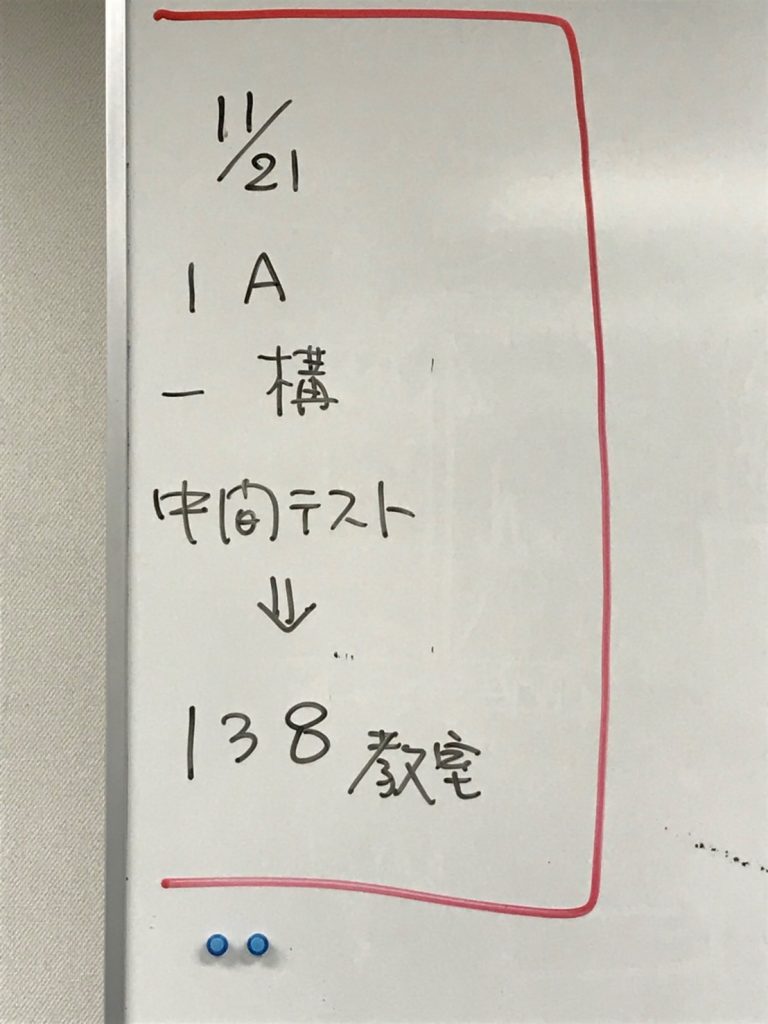 11/21
1 A
一 構
中間テスト
⇓
138 教室